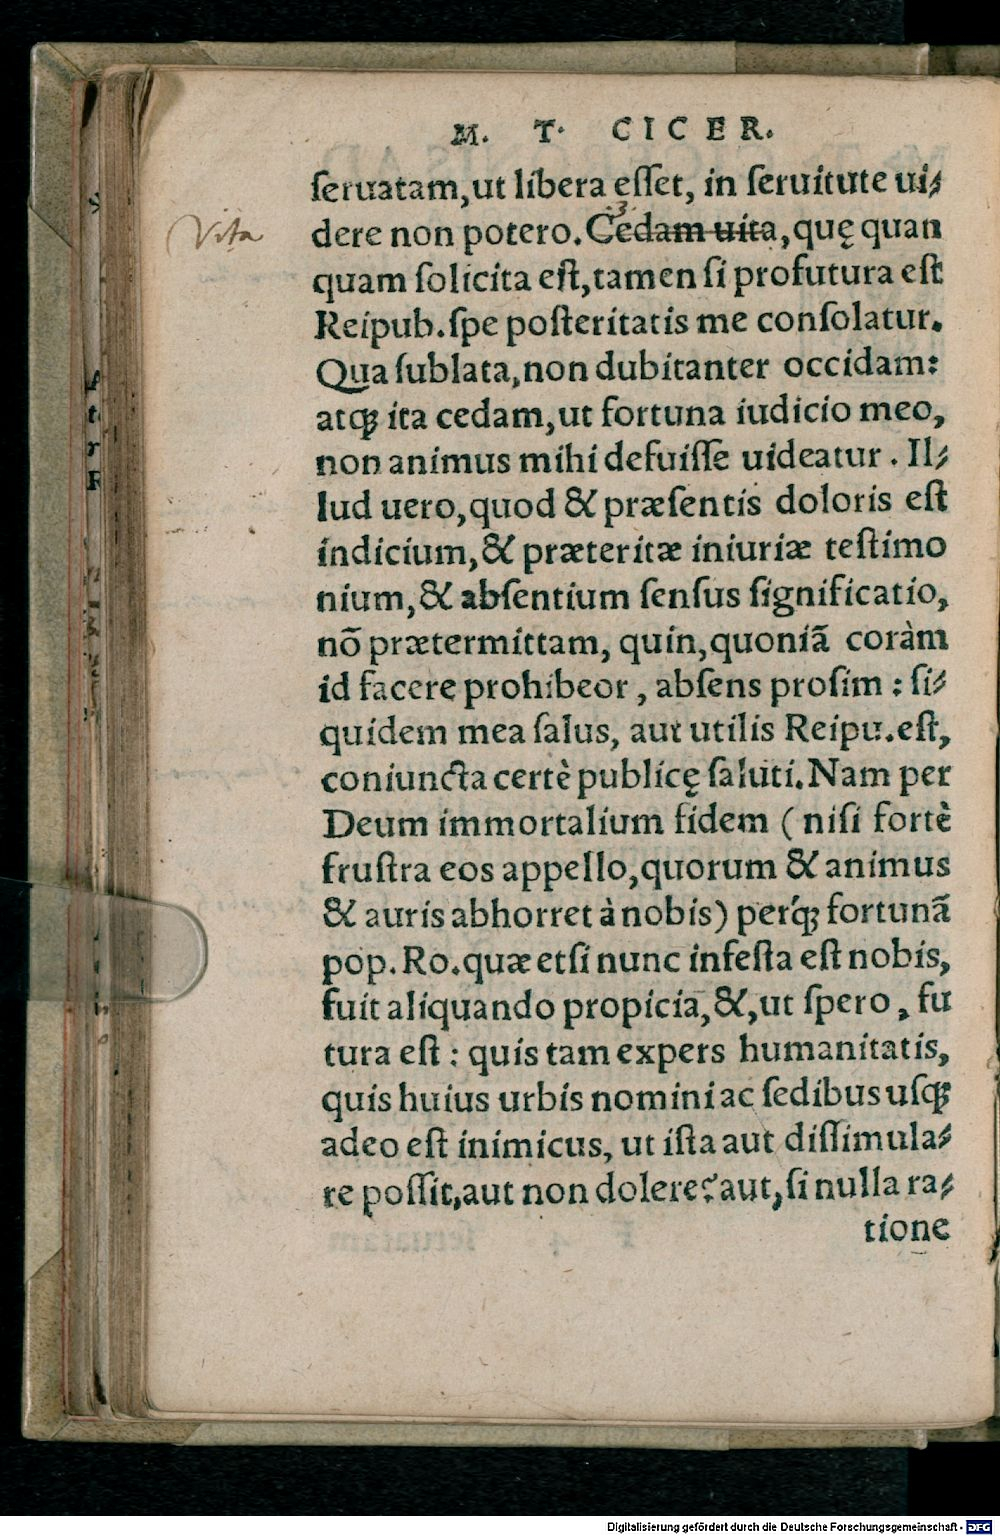 M. T. CICER.
ſeruatam,ut libera eſſet, in ſeruitute ui⸗
.3.
Vita
dere non potero. Cedam uita, quę quan
quam ſolicita eſt, tamen ſi profutura eſt
Reipub. ſpe poſteritatis me conſolatur.
Qua ſublata, non dubitanter occidam:
atq; ita cedam, ut fortuna iudicio meo,
non animus mihi defuiſſe uideatur. Il⸗
lud uero, quod & præſentis doloris eſt
indicium, & præteritæ iniuriæ teſtimo
nium, & abſentium ſenſus ſignificatio,
nõ prætermittam, quin, quoniã coràm
id facere prohibeor, abſens proſim: ſi⸗
quidem mea ſalus, aut utilis Reipu. eſt,
coniuncta certè publicę ſaluti. Nam per
Deum immortalium fidem (niſi fortè
fruſtra eos appello, quorum & animus
& auris abhorret à nobis) perq́; fortunã
pop. Ro. quæ etſi nunc infeſta eſt nobis,
fuit aliquando propicia, &, ut ſpero, fu
tura eſt: quis tam expers humanitatis,
quis huius urbis nomini ac ſedibus uſq;
adeo eſt inimicus, ut iſta aut diſſimula⸗
re poſſit, aut non dolere? aut, ſi nulla ra⸗
tione
Digitalisierung gefördert durch die Deutsche Forschungsgemeinschaft - DFG